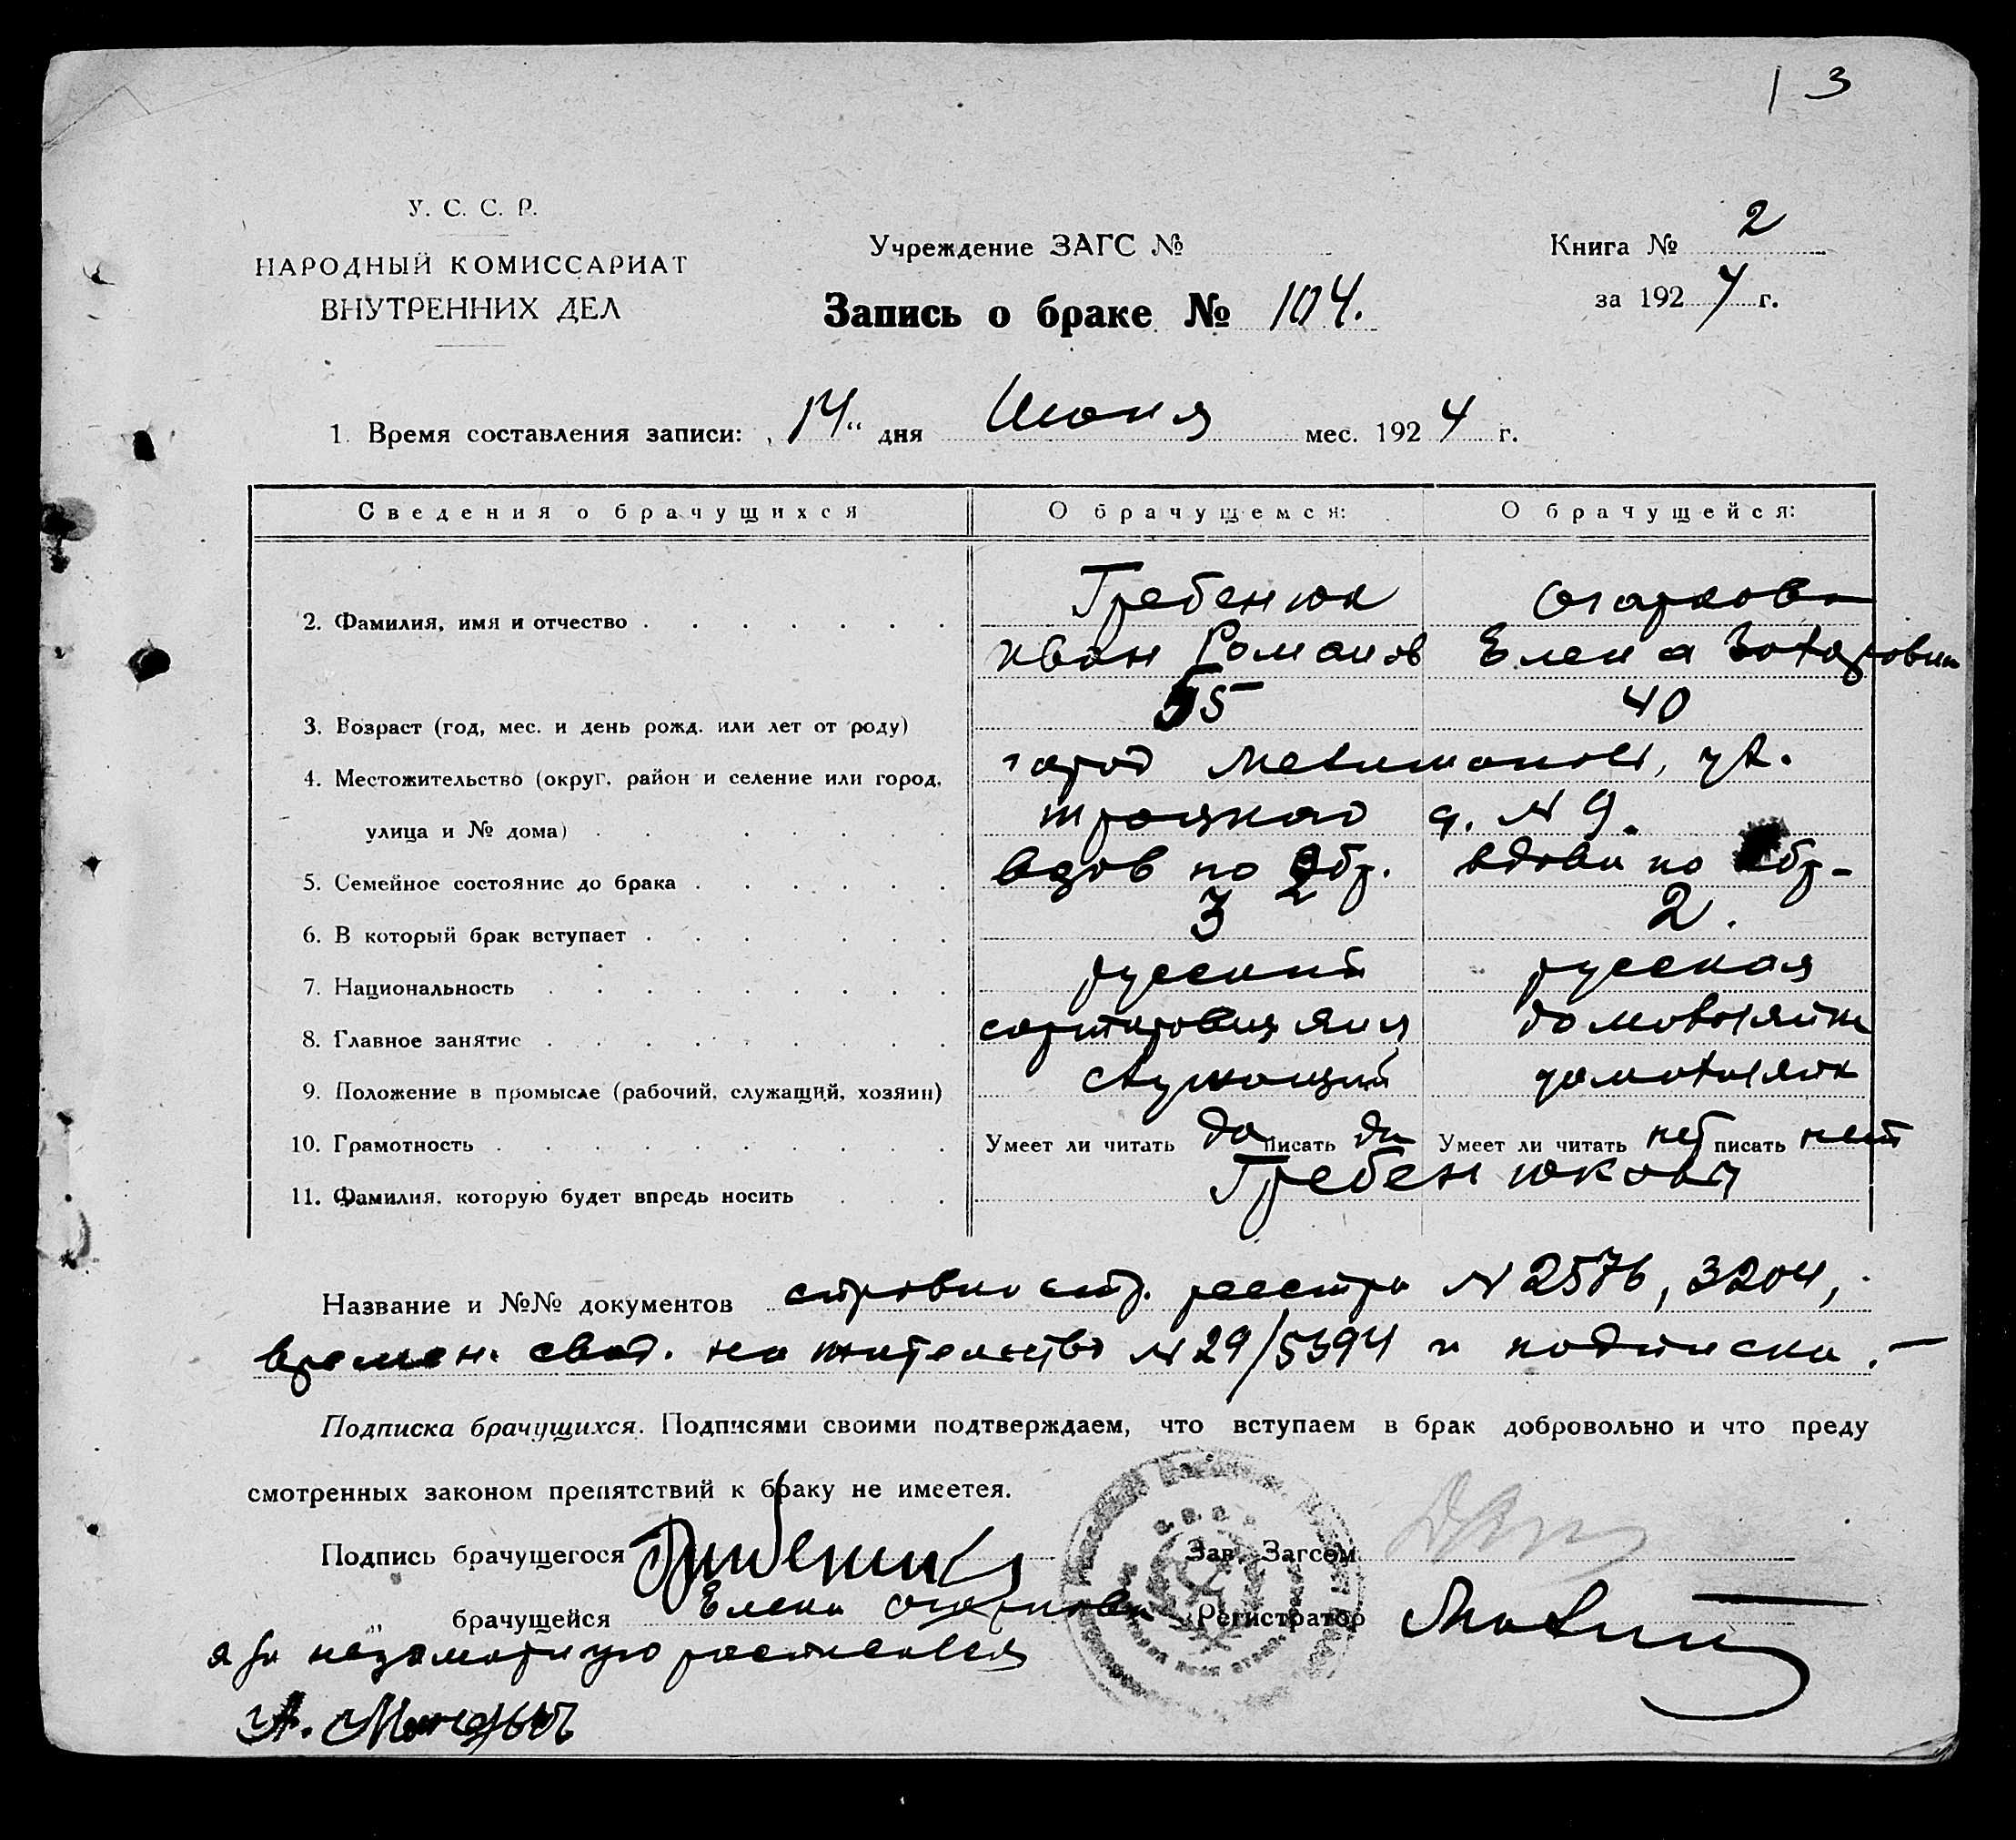 13
У. С. С. Р.
НАРОДНЫЙ КОМИССАРИАТ
ВНУТРЕННИХ ДЕЛ
Учреждение ЗАГС №
Книга № 2
за 1924 г.
Запись о браке № 104.
1. Время составления записи: „14" дня Июня мес. 1924 г.
Сведения о брачущихся О брачущемся: О брачущейся:
2. Фамилия, имя и отчество Гребенюк Огаркова
Иван Романов Елена Захаровна
3. Возраст (год, мес. и день рожд. или лет от роду) 55 40
4. Местожительство (округ, район и селение или город, город Мелитополь, ул.
улица и № дома) Троцкаго д. № 9.
5. Семейное состояние до брака вдов по 2 бр. вдова по бр.
6. В который брак вступает 3 2.
7. Национальность русский русская
8. Главное занятие сортировщик яиц домохозяйка
9. Положение в промысле (рабочий, служащий, хозяин) служащий домохозяйк
10. Грамотность Умеет ли читать да писать да Умеет ли читать нет писать нет
11. Фамилия, которую будет впредь носить Гребенюковы
Название и №№ документов справки реестра № 2576, 3204,
времен. свид. на жительство № 29/5394 и подписка.
Подписка брачущихся. Подписями своими подтверждаем, что вступаем в брак добровольно и что преду
смотренных законом препятствий к браку не имеется.
Подпись брачущегося Гребенюк Зав. Загсом
„ брачущейся Елена Огаркова Регистратор
а за неграмотную расписался
А.